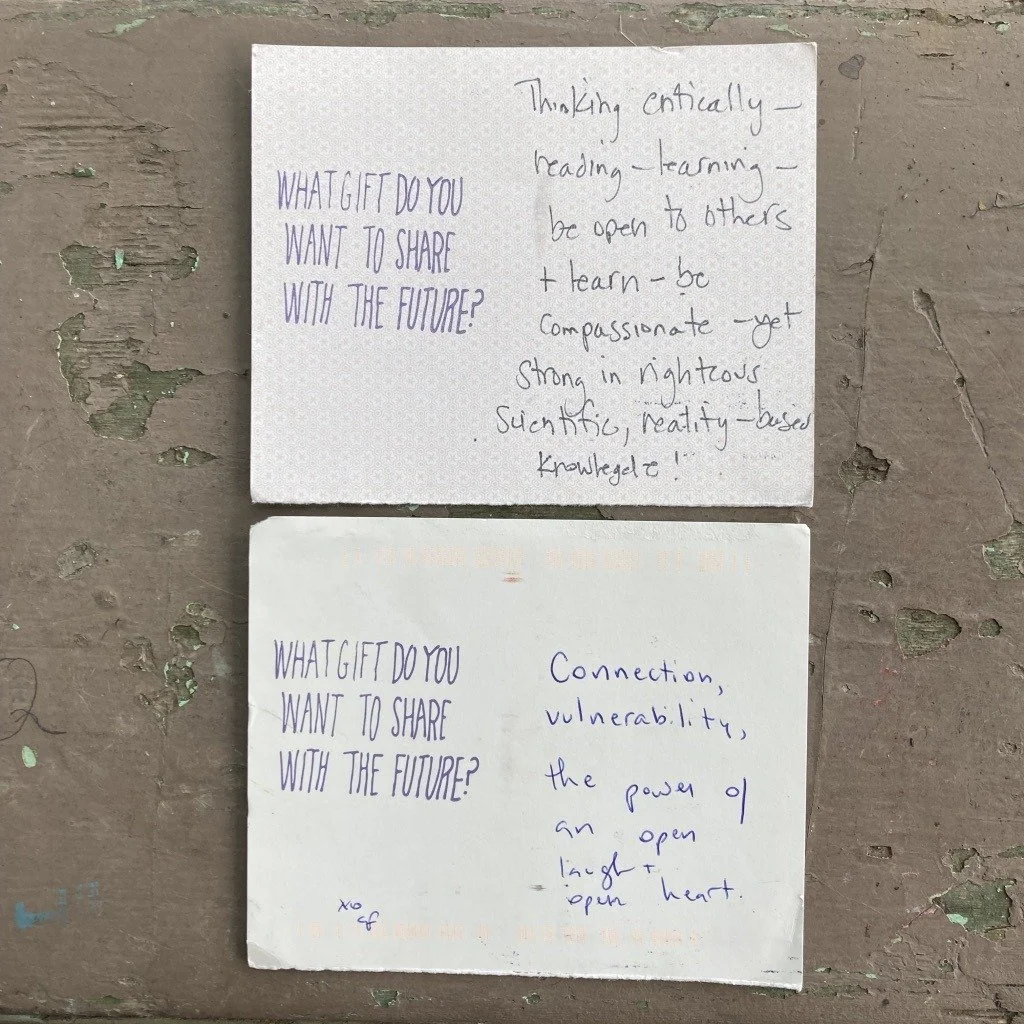 WHAT GIFT DO YOU
WANT TO SHARE
WITH THE FUTURE?
Thinking critically –
reading – learning –
be open to others
+ learn – be
compassionate – yet
strong in righteous
Scientific, reality – based
Knowlegde!
WHAT GIFT DO YOU
WANT TO SHARE
WITH THE FUTURE?
Connection,
vulnerability,
the power of
an open
laugh +
open heart.
xo